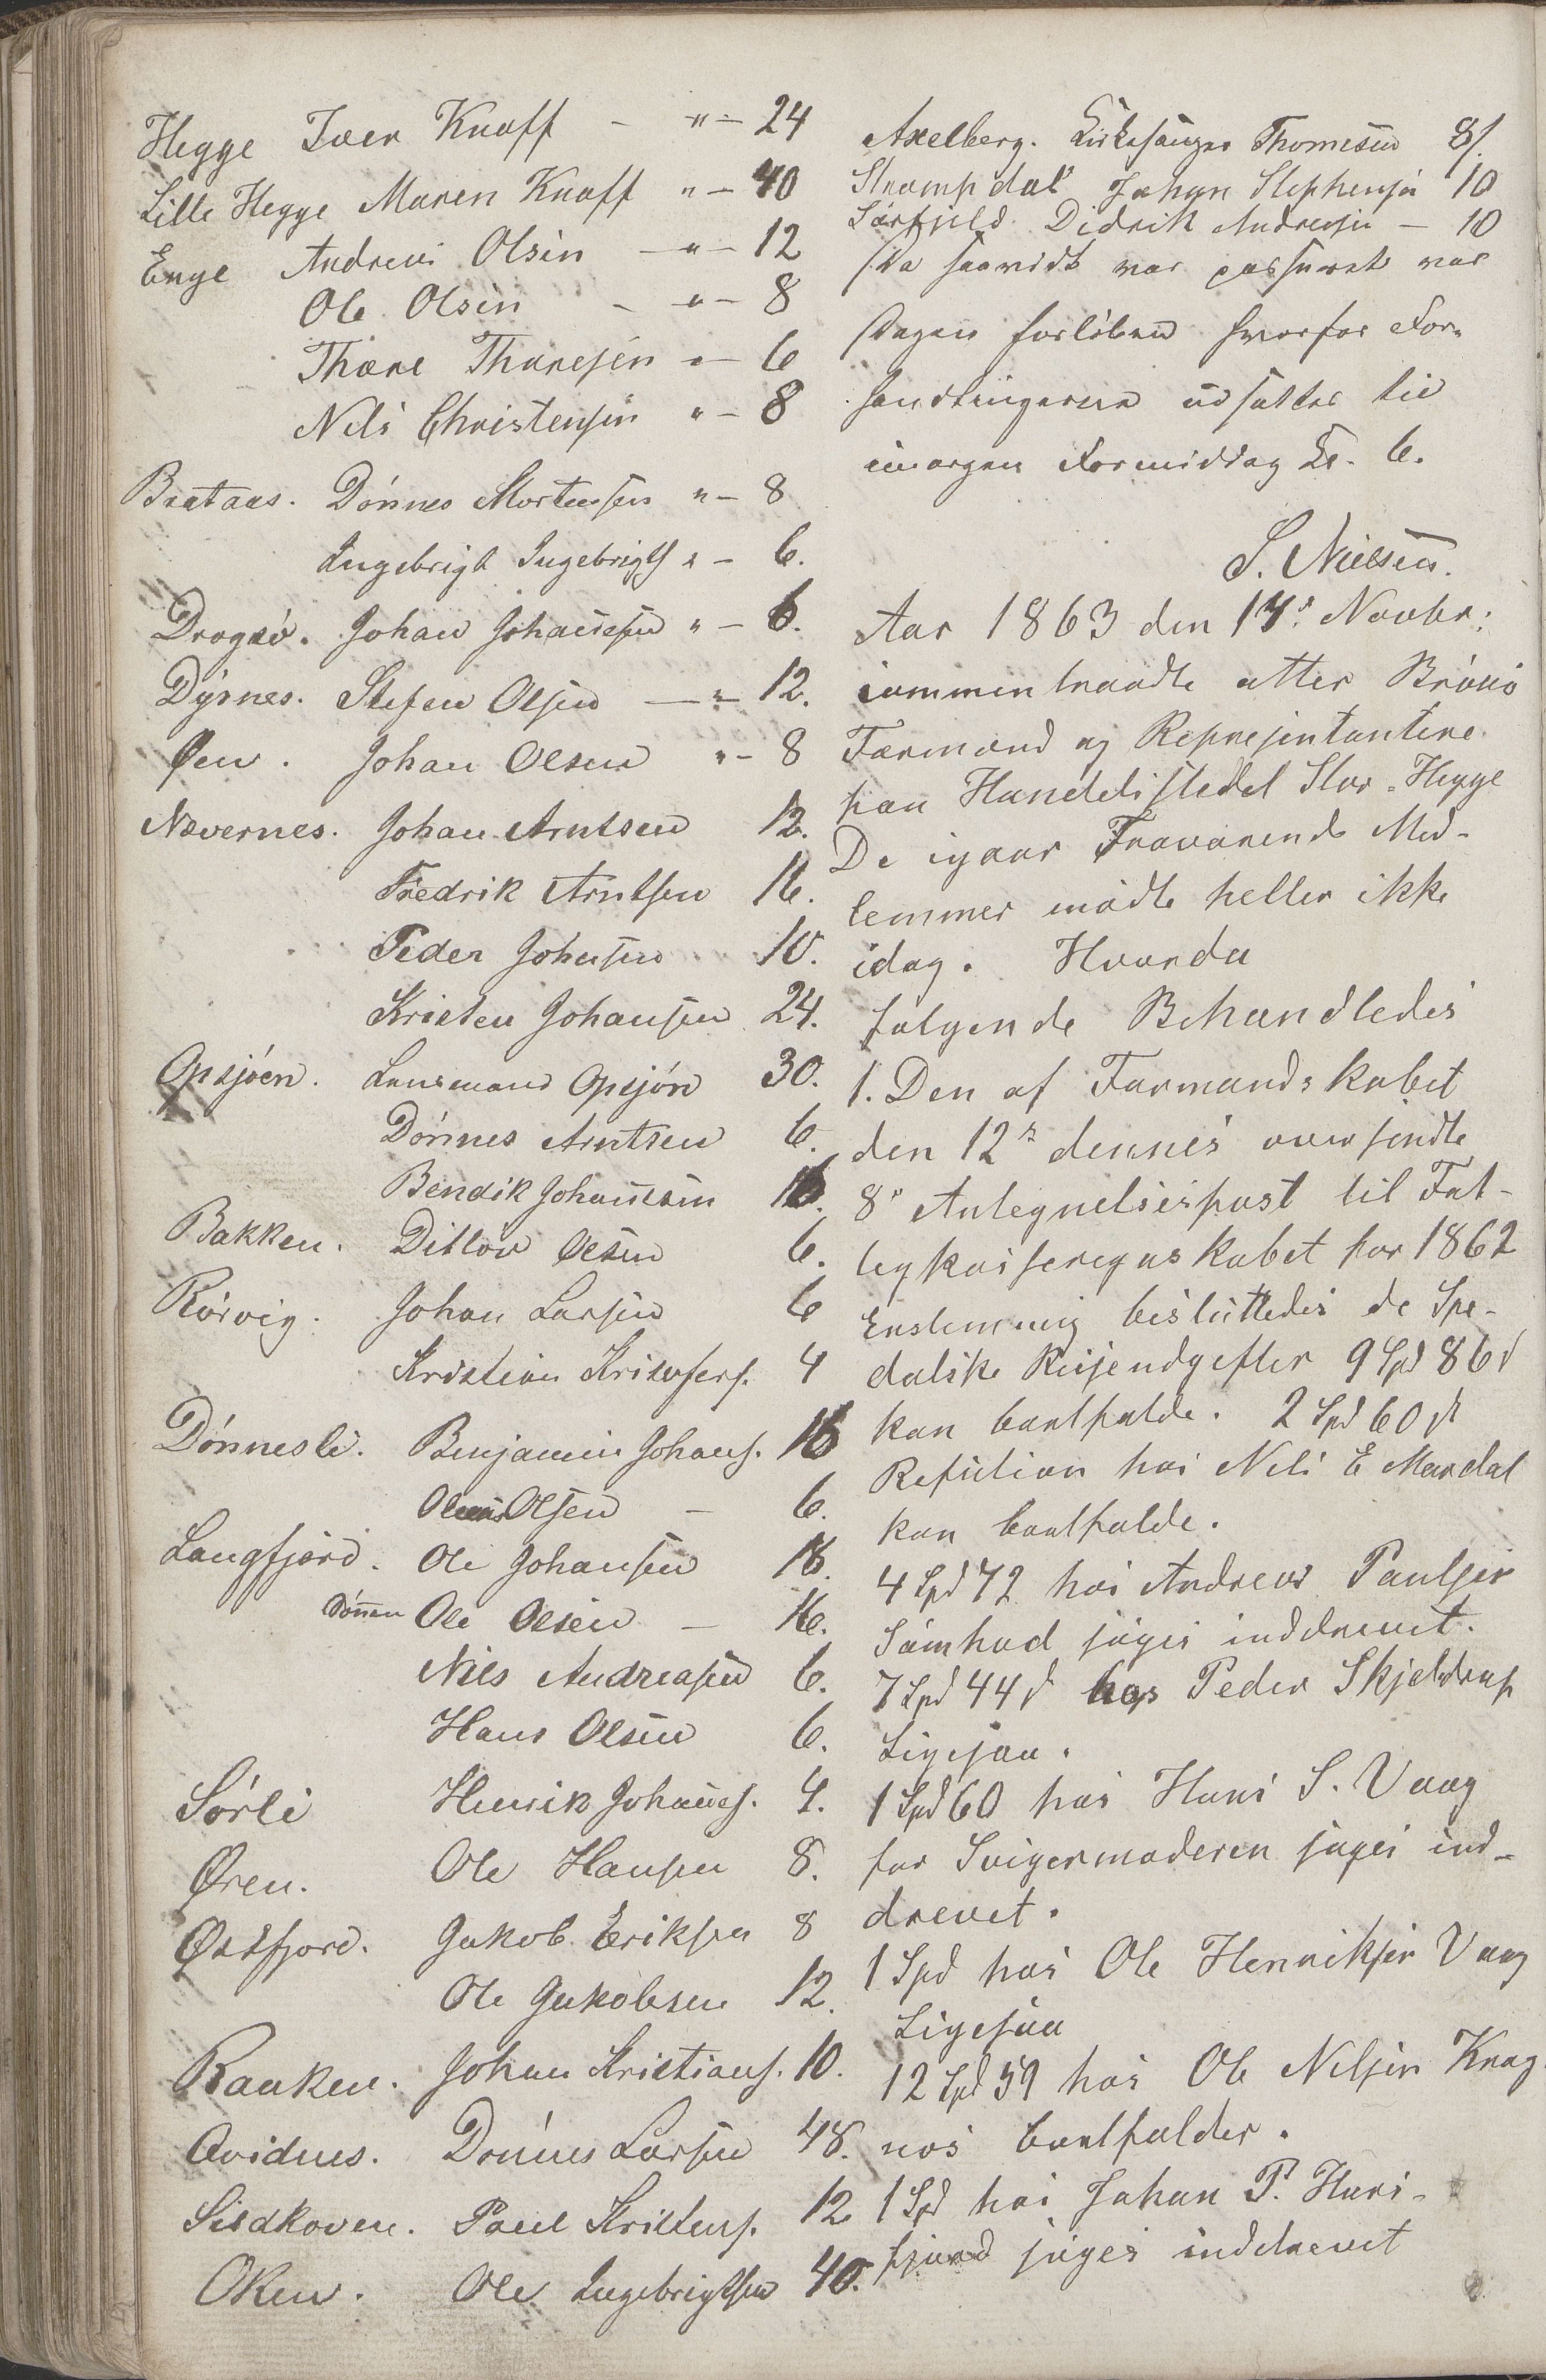 Hegge Iver Knoff - " - 24
Lille Hegge Maren Knoff " - 40
Enge Andreas Olsen - " - 12
Ole Olsen - " - 8
Thore Thoresen " - 6
Nils Christensen " - 8
Brataas. Dönnes Mortensen " - 8
Ingebrigt Ingebrigts " - 6.
Dragsö. Johan Johannesen " - 6.
Dyrnes. Stefen Olsen - " - 12.
Øen. Johan Olsen " - 8
Nævernes. Johan Arntsen 12.
Fredrik Arntsen 16.
Peder Johansen 10.
Kristen Johansen 24.
Opsjöen. Lensmand Opsjön 30.
Dönnes Arntsen 6.
Bendik Johannesen 16.
Bakken. Ditlov Olsen 6.
Rörvig. Johan Larsen 6
Kristian Kristofers. 4
Dönnesli. Benjamin Johans. 16
Olsen - 6.
Langfjord. Ole Johansen 18.
Dönnen Ole Olsen - 16.
Nils Andreasen 6.
Hans Olsen 6.
Sörli Henrik Johans. 4.
Øren. Ole Hansen 8.
Østfjord. Jakob Eriksen 8
Ole Jakobsen 12.
Ranken. Johan Kristians. 10.
Qvidnes. Dönnes Larsen 48.
Sildkoven. Paul Kristens. 12
Oken. Ole Ingebrigtsen 40.
Axelberg. Kirkesanger Thomesen 8/.
Strompdal Johan Stephensen 10
Sörfjeld Didrik Andresen - 10
Da saavidt var passeret var
Dagen forlöben hvorfor For-
handlingerne udsattes til
imorgen Formiddag Kl. 6.
S. Nielsen.
Aar 1863 den 14de Novbr:
sammentraadte atter Brönö
Formænd og Representantere
paa Handelsstedet Stor-Hegge
De igaar Fraværende Med-
lemmer mödte heller ikke
idag. Hvorda
fölgende Behandledes
1. Den af Formandskabet
den 12te dennes oversendte
8de Antegnelsespost til Fat-
tigkasseregnskabet for 1862
Enstemmig besluttedes de Spe-
dalske Reiseudgifter 9 Spd 86 s
kan bortfalde. 2 Spd 60 s
Refusion hos Nils E Mardal
kan bortfalde.
4 Spd 72 hos Andreas Paulsen
Sömhod söges inddrevet.
7 Spd 44 s hos Peder Skjeldrup
Ligesaa.
1 Spd 60 hos Hans S. Vaag
for Svigermoderen söges ind-
drevet.
1 Spd hos Ole Henriksen Vaag
Ligesaa
12 Spd 59 hos Ole Nilsen Krag-
nes bortfalder.
1 Spd hos Johan P. Hors-
fjord söges inddrevet